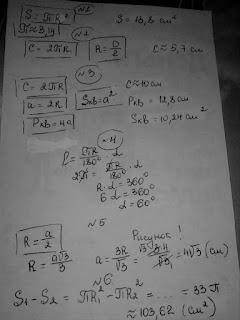 №1
S = ПR²
П ≈ 3,14
S = 13,8 см²
№2
C = 2ПR
R = D/2
C ≈ 5,7 см
№3
C = 2ПR
C ≈ 10 см
a = 2R
Sкв = a²
Pкв = 12,8 см
Pкв = 4a
Sкв = 10,24 см²
№4
l = ПR/180° · α
2П = ПR/180° · α
R · α = 360°
6 α = 360°
α = 60°
№5
Рисунок!
R = a/2
R = a√3/3
a = 3R/√3 = 3·4/√3 = 4√3 (см)
№6
S₁ - S₂ = ПR₁² - ПR₂² = ... = 33 П
≈ 103,62 (см²)